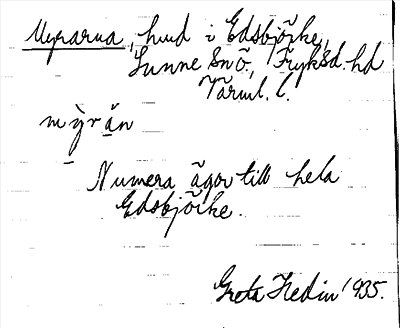 Myrarna, hmd i Edsbjörke,
Sunne Snö, Fryksd. hd
Värml. l.
my̆̀rån
Numera ägor till hela
Edsbjörke.
Greta Hedin 1935.